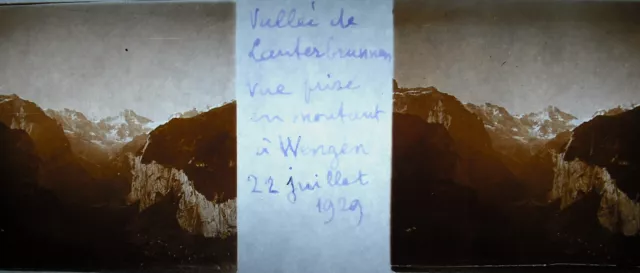 Vallée de
Lauterbrunnen
Vue prise
en montant
à Wengen
22 juillet
1929